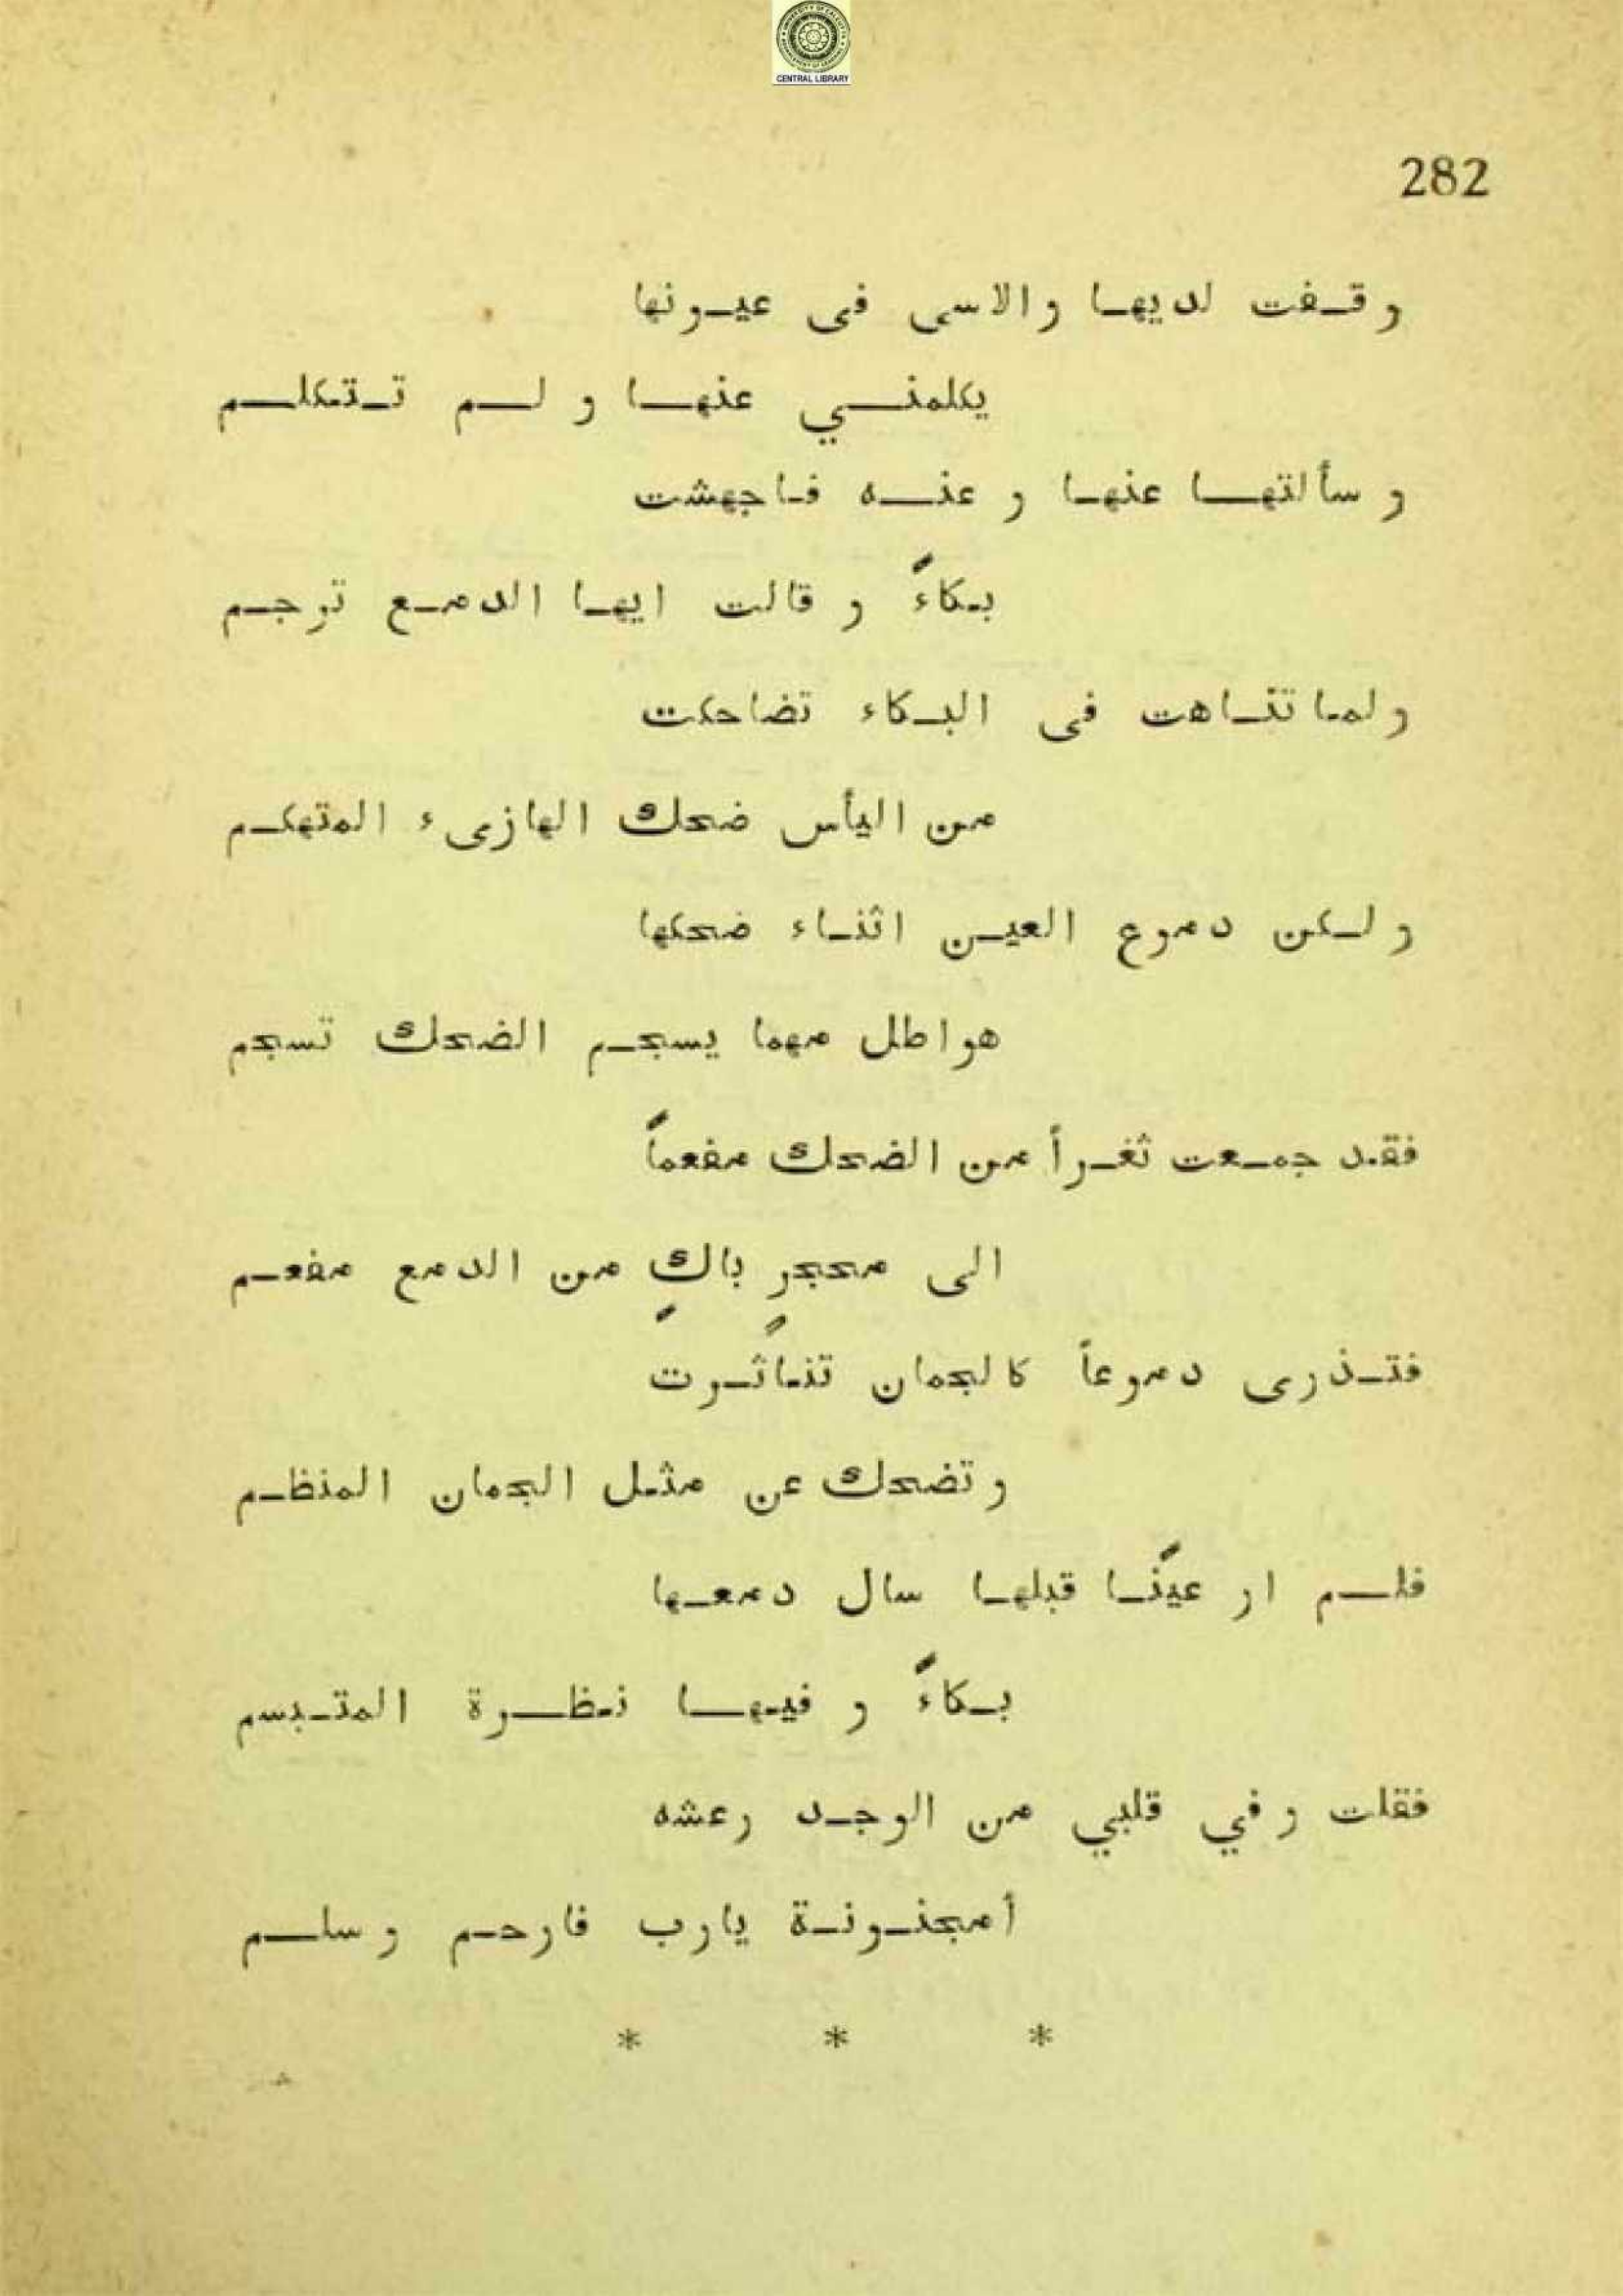 CENTRAL LIBRARY
282
وقفت لديها والاسى فى عيونها
يكلمني عنها و لم تتكلم
و سألتها عنها و عنه فاجهشت
بكاءً و قالت ايها الدمع ترجم
ولما تناهت فى البكاء تضاحكت
من اليأس ضحك الهازىء المتهكم
ولكن دموع العين اثناء ضحكها
هواطل مهما يسجم الضحك تسجم
فقد جمعت ثغراً من الضحك مفعماً
الى محجرٍ باكٍ من الدمع مفعم
فتذرى دموعاً كالجمان تناثرت
وتضحك عن مثل الجمان المنظم
فلم ار عينًا قبلها سال دمعها
بكاءً و فيها نظرة المتبسم
فقلت وفي قلبي من الوجد رعشه
أمجنونة يارب فارحم وسلم
* * *